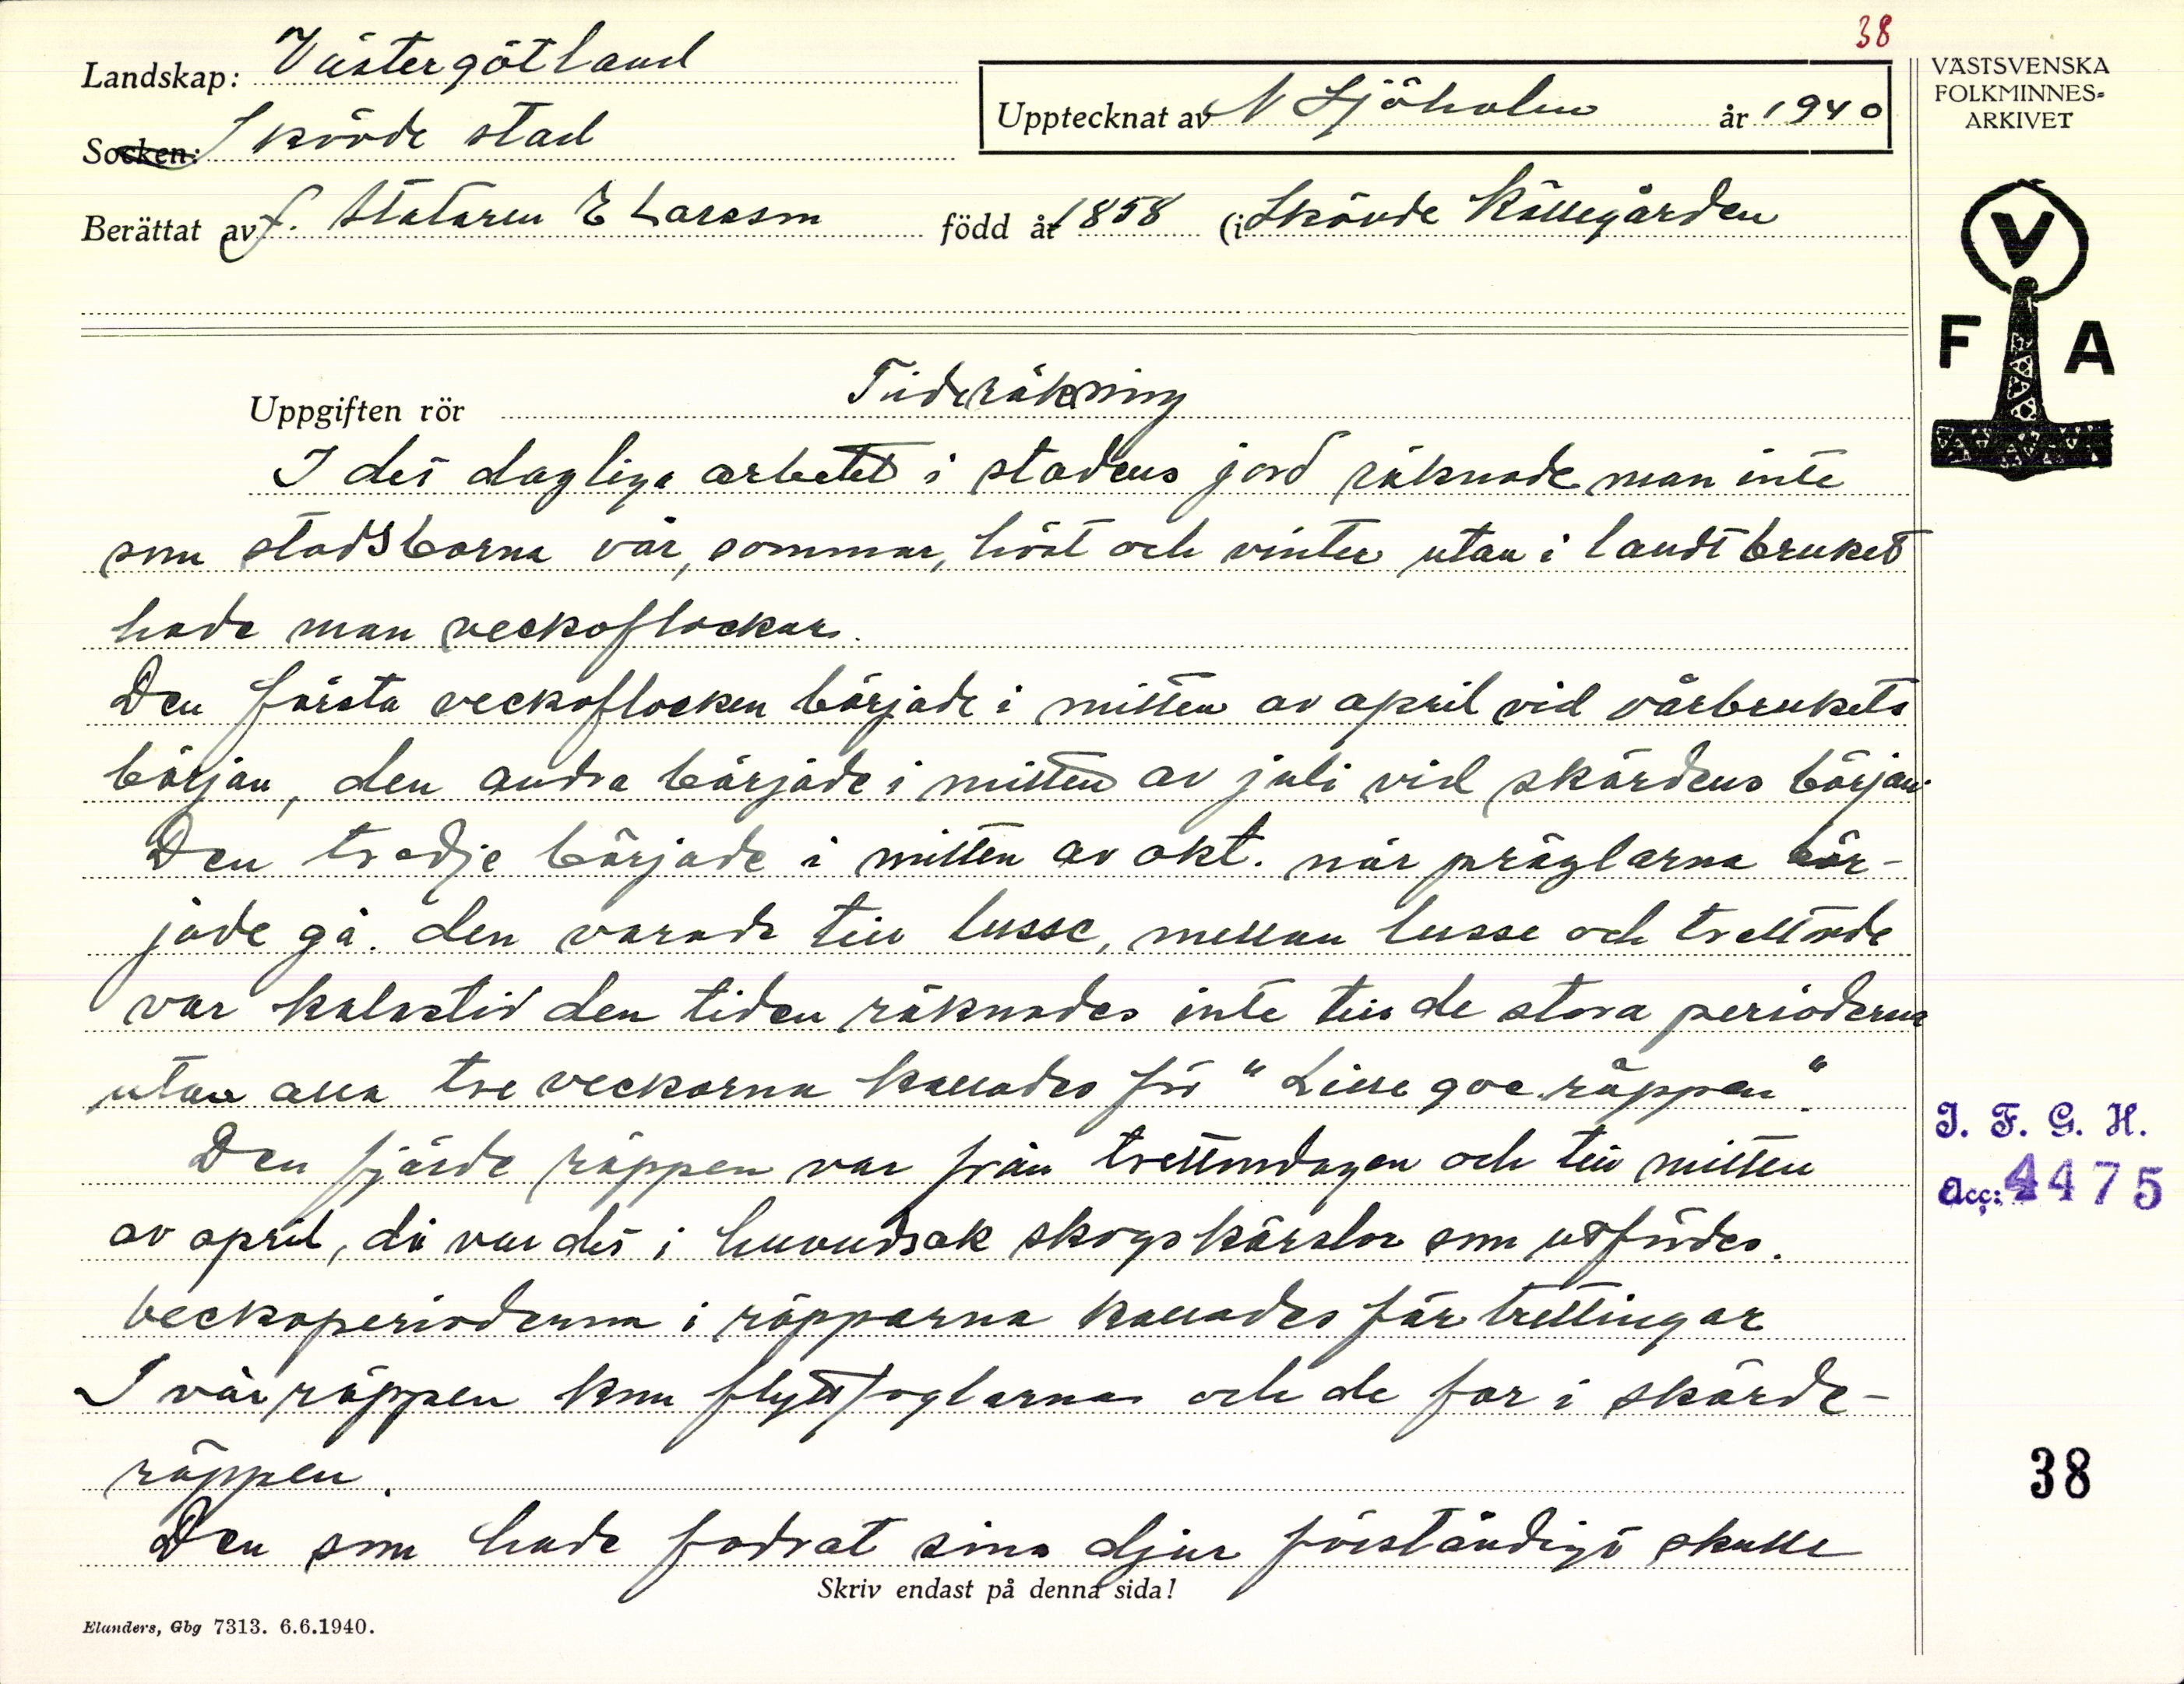 38
Landskap: Västergötland
Upptecknat av N Sjöholm år 1940
VÄSTSVENSKA
FOLKMINNES-
ARKIVET
Socken: Skövde stad
Berättat av f. Stataren E Larsson född år 1858 (i Skövde Källegården
V
F A
Uppgiften rör Tideräkning
I det dagliga arbetet i stadens jord räknade man inte
som stadsborna vår, sommar, höst och vinter utan i landtbruket
hade man veckoflockar.
Den första veckoflocken började i mitten av april vid vårbrukets
början, den andra började i mitten av juli vid skördens början.
Den tredje började i mitten av okt. när präglarna bör-
jade gå. den varade till lusse, mellan lusse och trettnde
var kalastid den tiden räknades inte till de stora perioderna
utan alla tre veckorna kallades för "Lille goe räppen".
Den fjärde räppen var från trettondagen och till mitten
av april, då var det i huvudsak skogskörslor som utfördes.
Veckoperioderna i räpparna kallades för trettingar
I vårräppen kom flyttfoglarna och de for i skörde-
räppen.
Den som hade fodrat sina djur förståndigt skulle
Skriv endast på denna sida!
Elanders, Gbg 7313. 6.6.1940.
I. F. G. H.
Acc: 4475
38